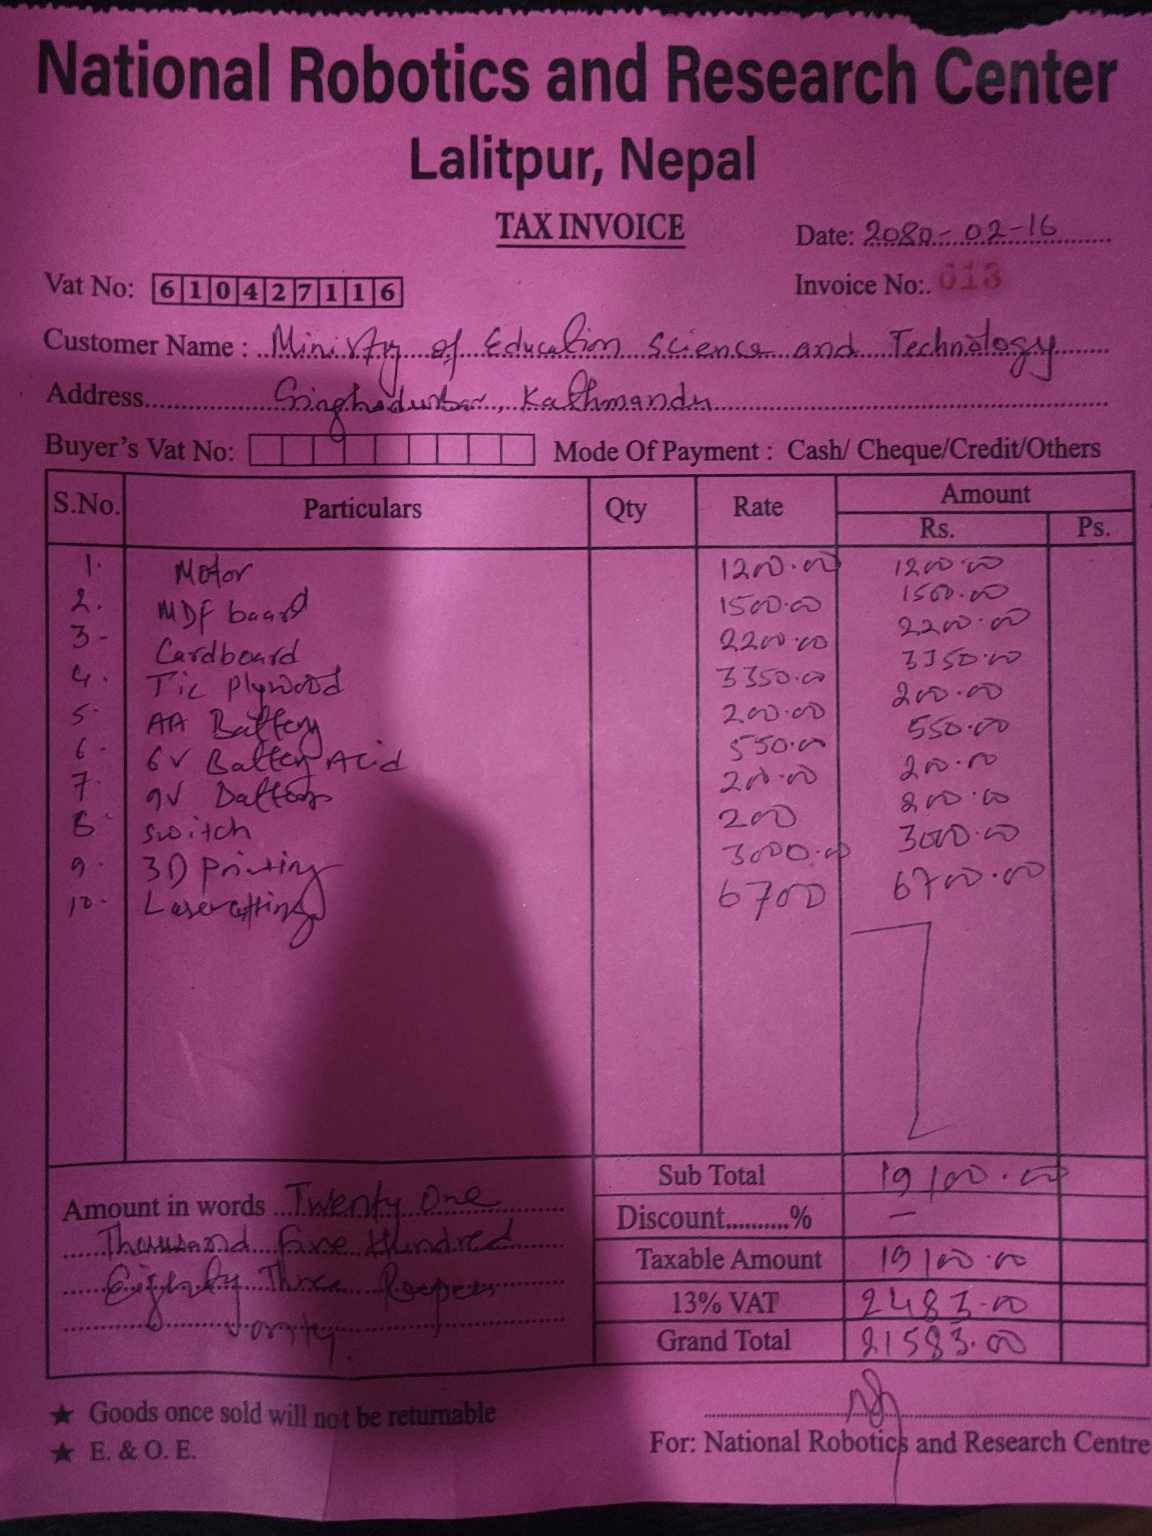 National Robotics and Research Center
Lalitpur, Nepal
TAX INVOICE
Date: 2080-02-16
Vat No: 610427116
Invoice No:. 013
Customer Name : Ministry of Education Science and Technology
Address Singhadurbar, Kathmandu
Buyer's Vat No:
Mode Of Payment : Cash/ Cheque/Credit/Others
S.No. Particulars Qty Rate Amount
Rs. Ps.
1. Motor 1200.00 1200.00
2. MDF board 1500.00 1500.00
3- Cardboard 2200.00 2200.00
4. Tic Plywood 3350.00 3350.00
5- AA Battery 200.00 200.00
6- 6V Battery Acid 550.00 550.00
7- 9V Battery 200.00 200.00
8- Switch 200 200.00
9- 3D Printing 3000.00 3000.00
10- Lasercutting 6700 6700.00
Sub Total 19100.00
Amount in words Twenty One
Discount..........% —
Thousand Five Hundred
Taxable Amount 19100.00
Eighty Three Rupees
13% VAT 2483.00
Grand Total 21583.00
★ Goods once sold will not be returnable
★ E. & O. E.
For: National Robotics and Research Centre